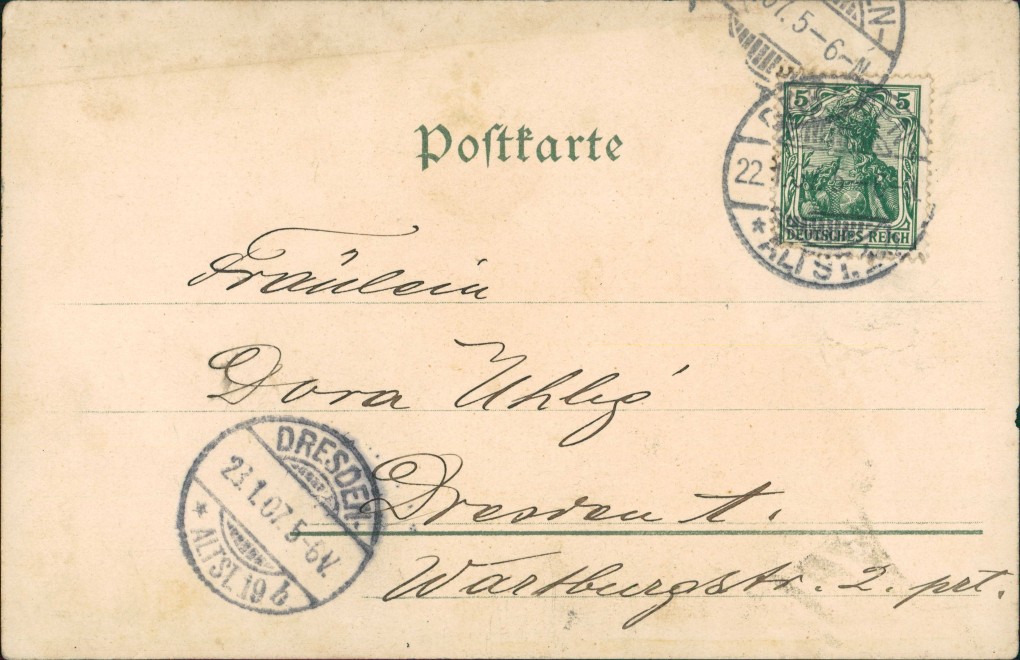 07.5-6-N
EN-
5 5
22
DEUTSCHES REICH
* ALTST.
Postkarte
Fräulein
Dora Uhlig
DRESDEN.
23.1.07.5-6V.
* ALTST.19 b
Dresden A.
Wartburgstr. 2. prt.